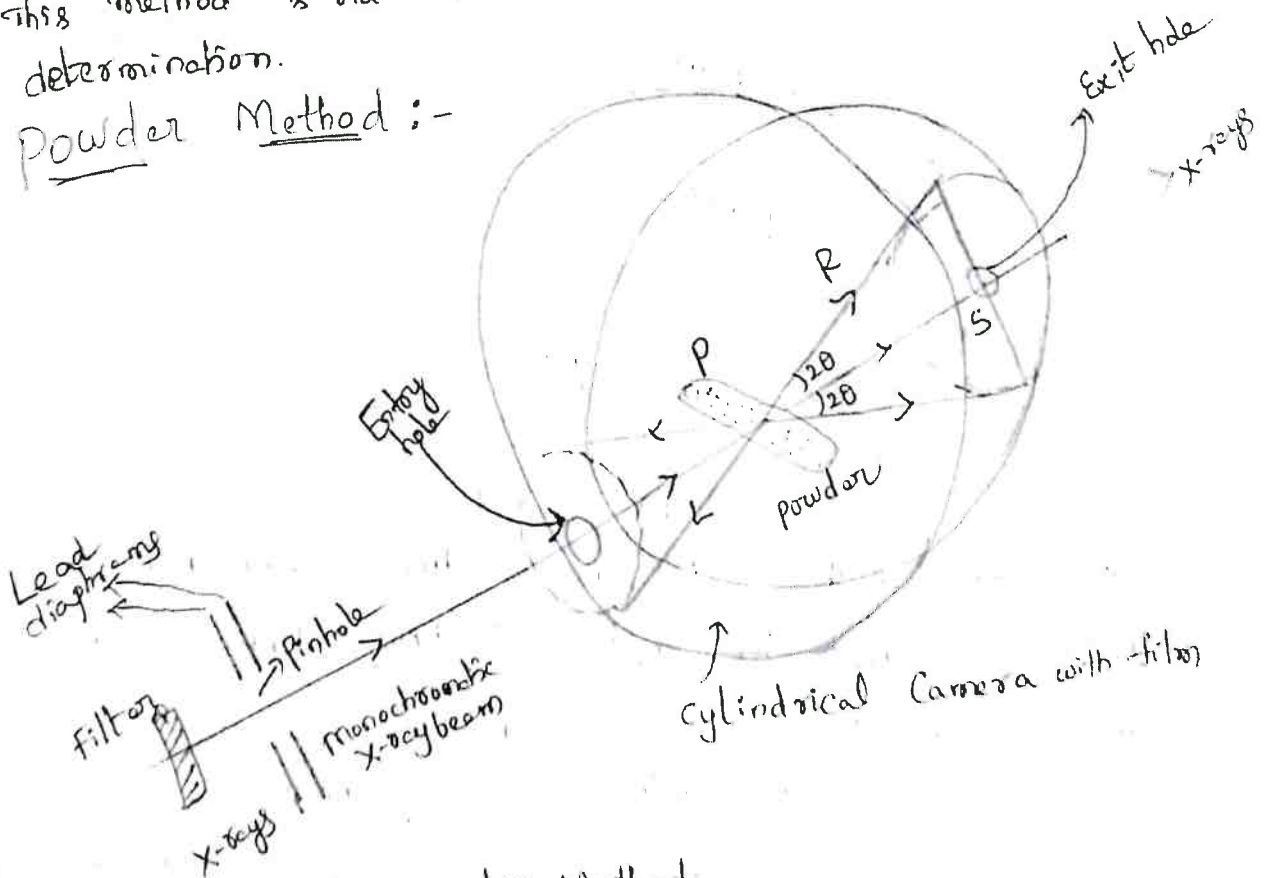 This method is
determination.
Powder Method :-
Exit hole
X-rays
R
S
P
)2θ
)2θ
Entry
hole
powder
Lead
diaphrams
Pinhole
filter
monochromatic
X-ray beam
X-rays
Cylindrical Camera with film